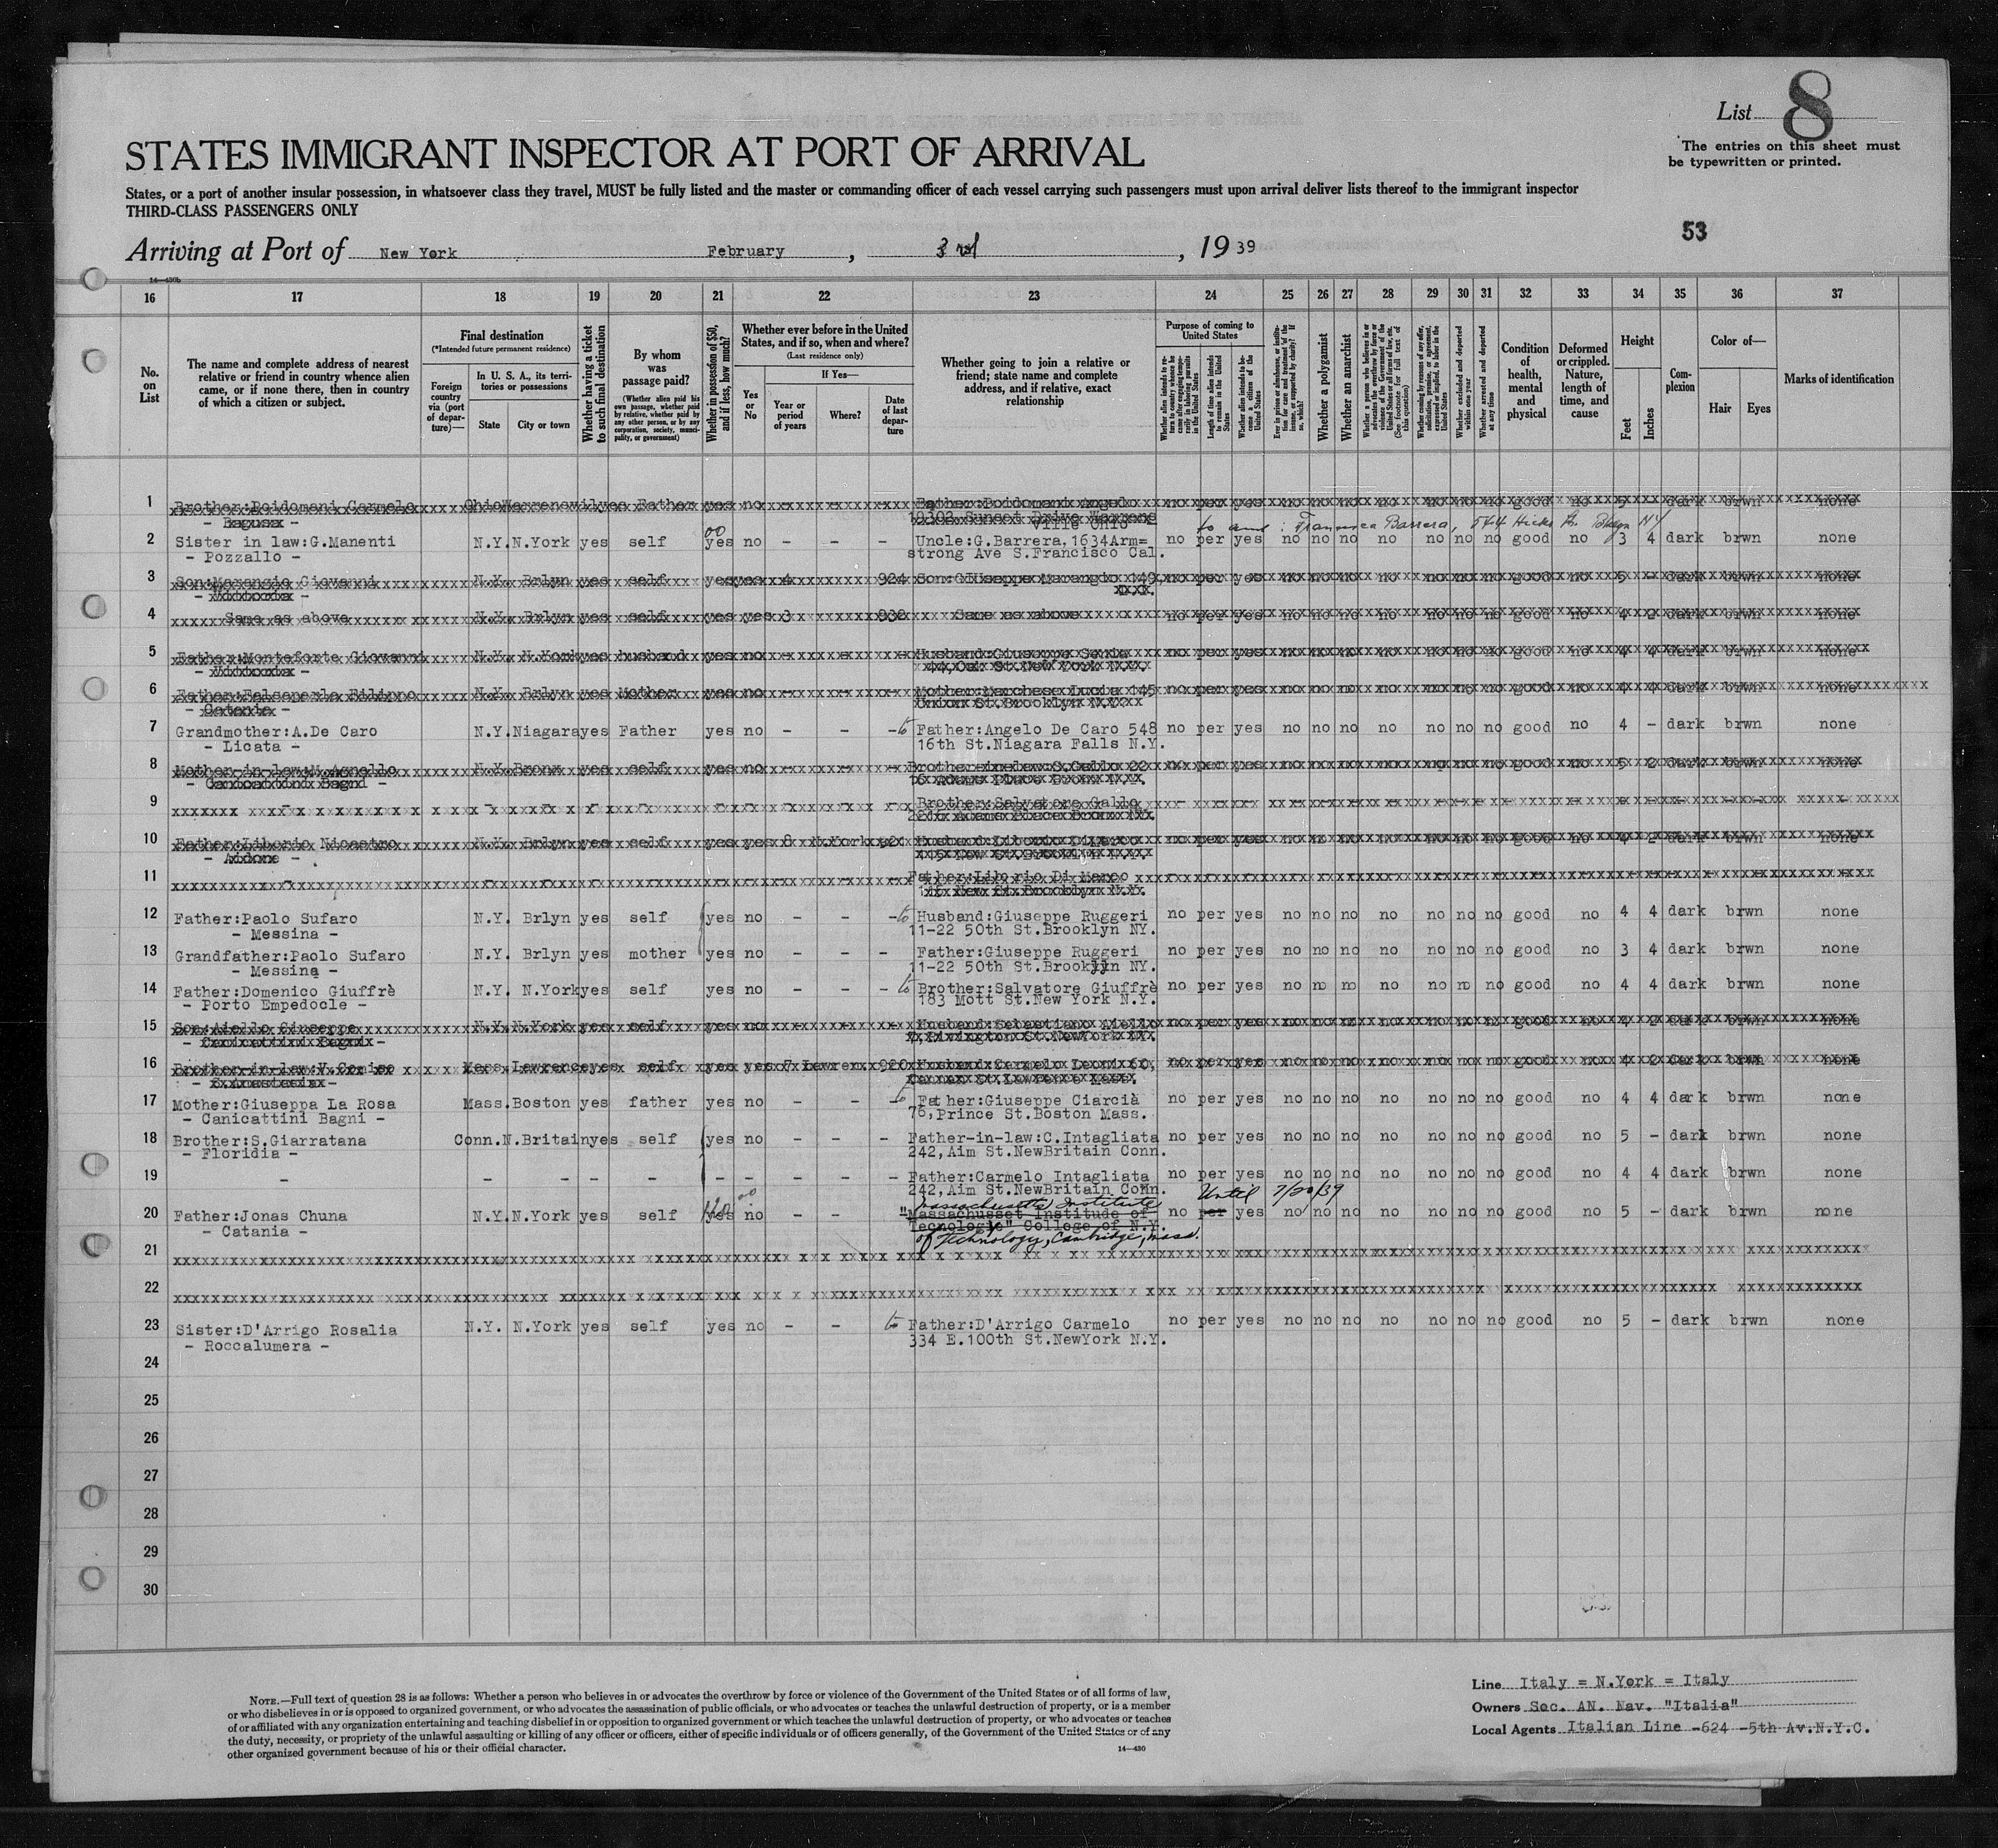 List 8
The entries on this sheet must
be typewritten or printed.
STATES IMMIGRANT INSPECTOR AT PORT OF ARRIVAL
States, or a port of another insular possession, in whatsoever class they travel, MUST be fully listed and the master or commanding officer of each vessel carrying such passengers must upon arrival deliver lists thereof to the immigrant inspector
THIRD-CLASS PASSENGERS ONLY
53
Arriving at Port of New York February , 3 rd , 19 39
14—430b
16 17 18 19 20 21 22 23 24 25 26 27 28 29 30 31 32 33 34 35 36 37
No. on List
The name and complete address of nearest relative or friend in country whence alien came, or if none there, then in country of which a citizen or subject.
Final destination
(*Intended future permanent residence)
Foreign country via (port of departure)—
In U. S. A., its territories or possessions
State City or town
Whether having a ticket to such final destination
By whom was passage paid?
(Whether alien paid his own passage, whether paid by relative, whether paid by any other person, or by any corporation, society, municipality, or government)
Whether in possession of $50, and if less, how much?
Whether ever before in the United States, and if so, when and where?
(Last residence only)
Yes or No
If Yes—
Year or period of years Where? Date of last departure
Whether going to join a relative or friend; state name and complete address, and if relative, exact relationship
Purpose of coming to United States
Whether alien intends to return to country whence he came after engaging temporarily in laboring pursuits in the United States
Length of time alien intends to remain in the United States
Whether alien intends to become a citizen of the United States
Ever in prison or almshouse, or institution for care and treatment of the insane, or supported by charity? If so, which?
Whether a polygamist
Whether an anarchist
Whether a person who believes in or advocates the overthrow by force or violence of the Government of the United States or all forms of law, etc. (See footnote for full text of this question)
Whether coming by reason of any offer, solicitation, promise, or agreement, expressed or implied, to labor in the United States
Whether excluded and deported within one year
Whether arrested and deported at any time
Condition of health, mental and physical
Deformed or crippled. Nature, length of time, and cause
Height
Feet Inches
Complexion
Color of—
Hair Eyes
Marks of identification
1 Brother:Poidomani Carmelo Ohio Father yes no no per yes no no no no no no no good no 5 dark brwn none
- Ragusa -
Ville Ohio
00 to aunt : Francesca Barrera, Hicks St. Bklyn NY
2 Sister in law:G.Manenti N.Y. N.York yes self yes no - - - Uncle:G.Barrera,1634Arm= no per yes no no no no no no no good no 3 4 dark brwn none
- Pozzallo - strong Ave S.Francisco Cal.
3 Giovanni N.Y. Brlyn yes self yes yes 4 924 no per yes no no no no no no no good no 5 - dark brwn none
4 Same as above N.Y. Brlyn yes self yes yes 3 932 Same as above no per yes no no no no no no no good no 4 2 dark brwn none
5 Father:Monteforte Giovanni N.Y. N.York yes husband yes no no per yes no no no no no no no good no 4 4 dark brwn none
6 Father:Falsaperla Filippo N.Y. Brlyn yes Mother yes no Mother:Marchese Lucia 145 no per yes no no no no no no no good no 4 4 dark brwn none
- Catania -
7 Grandmother:A.De Caro N.Y. Niagara yes Father yes no - - - to Father:Angelo De Caro 548 no per yes no no no no no no no good no 4 - dark brwn none
- Licata - 16th St.Niagara Falls N.Y.
8 Mother-in-law:M.Agnello N.Y. Bronx yes self yes no no per yes no no no no no no no good no 5 2 dark brwn none
9 Brother:Salvatore Gallo
10 Father:Liborio Nicastro N.Y. Brlyn yes self yes yes 8 N.York 921 no per yes no no no no no no no good no 4 2 dark brwn none
11 Father:Liborio Di Marco
12 Father:Paolo Sufaro N.Y. Brlyn yes self yes no - - - to Husband:Giuseppe Ruggeri no per yes no no no no no no no good no 4 4 dark brwn none
- Messina - 11-22 50th St.Brooklyn NY.
13 Grandfather:Paolo Sufaro N.Y. Brlyn yes mother yes no - - - Father:Giuseppe Ruggeri no per yes no no no no no no no good no 3 4 dark brwn none
- Messina - 11-22 50th St.Brooklyn NY.
14 Father:Domenico Giuffrè N.Y. N.York yes self yes no - - - to Brother:Salvatore Giuffrè no per yes no no no no no no no good no 4 4 dark brwn none
- Porto Empedocle - 183 Mott St.New York N.Y.
15 Son:Aiello Giuseppe N.Y. N.York yes self yes no Husband:Sebastiano Aiello no per yes no no no no no no no good no 4 2 dark brwn none
- Canicattini Bagni -
16 Brother-in-law: Mass. Lawrence yes self yes yes 7 Lawren. 920 no per yes no no no no no no no good no 4 2 dark brwn none
17 Mother:Giuseppa La Rosa Mass. Boston yes father yes no - - - to Father:Giuseppe Ciarcià no per yes no no no no no no no good no 4 4 dark brwn none
- Canicattini Bagni - 76,Prince St.Boston Mass.
18 Brother:S.Giarratana Conn. N.Britain yes self yes no - - - Father-in-law:C.Intagliata no per yes no no no no no no no good no 5 - dark brwn none
- Floridia - 242,Aim St.NewBritain Conn.
19 - - - - - - - - - - Father:Carmelo Intagliata no per yes no no no no no no no good no 4 4 dark brwn none
242,Aim St.NewBritain Conn. Until 7/20/39
Massachusetts Institute
20 Father:Jonas Chuna N.Y. N.York yes self yes no - - "Massachusset Institude of no per yes no no no no no no no good no 5 - dark brwn none
- Catania - Tecnologic" College of N.Y.
of Technology, Cambridge, Mass.
21
22
23 Sister:D'Arrigo Rosalia N.Y. N.York yes self yes no - - to Father:D'Arrigo Carmelo no per yes no no no no no no no good no 5 - dark brwn none
- Roccalumera - 334 E.100th St.NewYork N.Y.
24
25
26
27
28
29
30
NOTE.—Full text of question 28 is as follows: Whether a person who believes in or advocates the overthrow by force or violence of the Government of the United States or of all forms of law,
or who disbelieves in or is opposed to organized government, or who advocates the assassination of public officials, or who advocates or teaches the unlawful destruction of property, or is a member
of or affiliated with any organization entertaining and teaching disbelief in or opposition to organized government or which teaches the unlawful destruction of property, or who advocates or teaches
the duty, necessity, or propriety of the unlawful assaulting or killing of any officer or officers, either of specific individuals or of officers generally, of the Government of the United States or of any
other organized government because of his or their official character.
14—430
Line Italy = N.York = Italy
Owners Soc. AN. Nav. "Italia"
Local Agents Italian Line -624 -5th Av.N.Y.C.